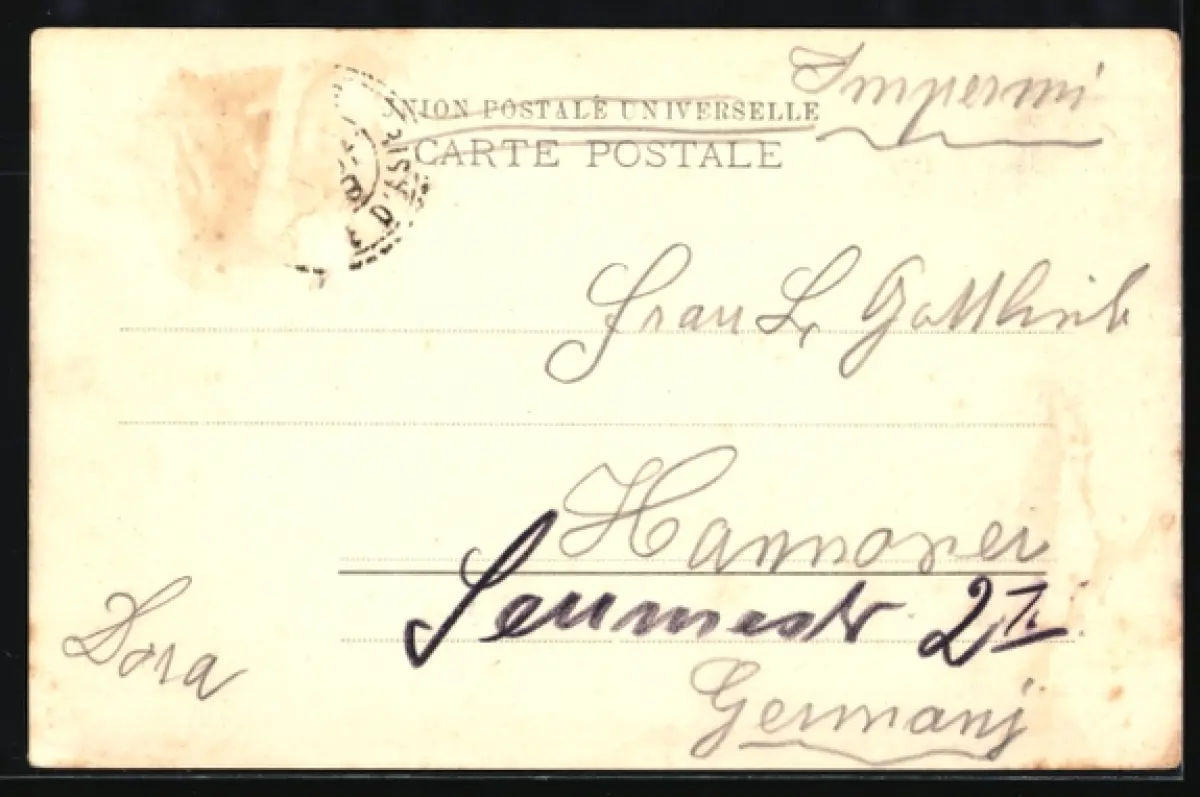 Impermi
UNION POSTALE UNIVERSELLE
CARTE POSTALE
D'ASIE
Frau L. Gottlieb
Hannover
Seumestr. 2 II
Germany
Dora